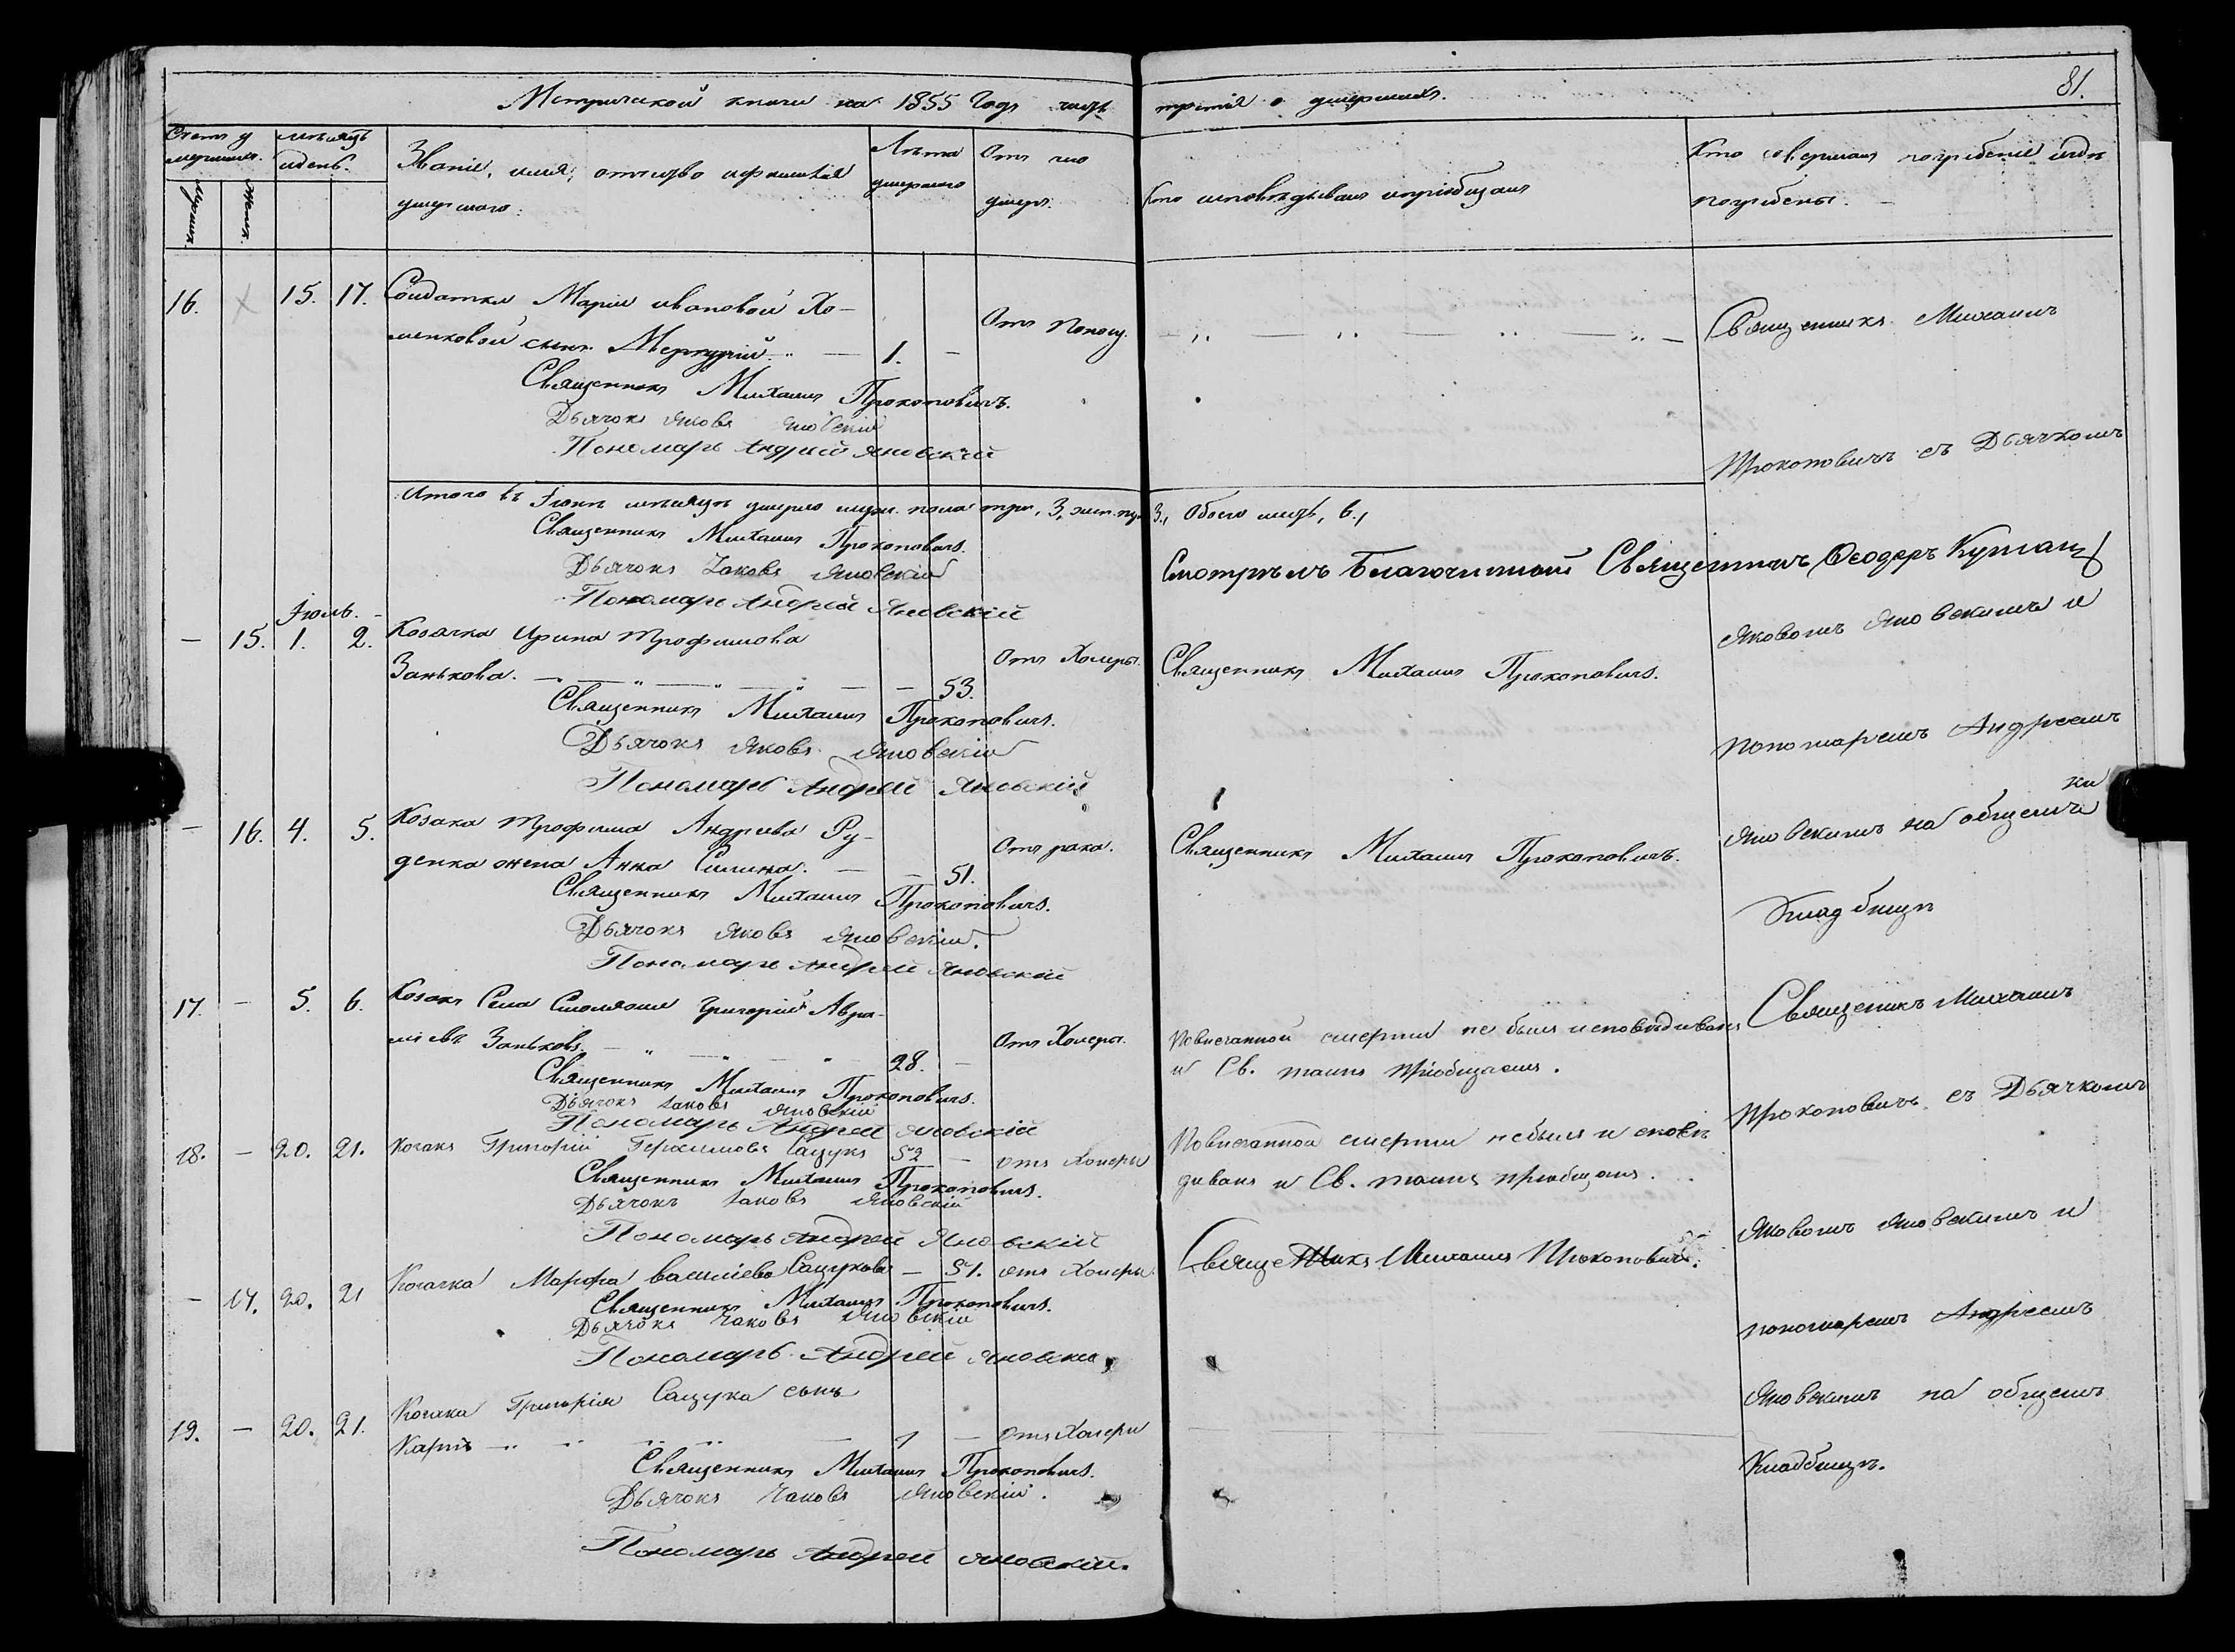 Метрической книги на 1855 Годъ часть третія о умершихъ.
81.
Счетъ у
мершихъ.
Мужеск.
Женск.
мѣсяцъ
и день.
Званіе, имя, отчество и фамилія
умершаго:
Лѣта
умершаго
Отъ чего
умеръ.
Кто исповѣдывалъ и пріобщалъ
Кто совершалъ погребеніе и гдѣ
погребены.
16. 15. 17. Солдатки Маріи Ивановой Хо-
менковой сынъ Меркурій 1. Отъ поносу.
Священникъ Михаилъ Прокоповичъ.
Дьячокъ Яковъ Яновскій
Пономарь Андрей Яновскій
Итого въ Іюнѣ мѣсяцѣ умерло муж. пола три, 3, жен. 3., Обоего 6.,
Священникъ Михаилъ Прокоповичъ.
Дьячокъ Іаковъ Яновскій
Пономарь Андрей Яновскій
Смотрѣлъ Благочинный Священникъ Ѳеодоръ
Іюль.
— 15. 1. 2. Козачка Ирина Трофимова
Занькова. 53. Отъ Холеры. Священникъ Михаилъ Прокоповичъ.
Священникъ Михаилъ Прокоповичъ.
Дьячокъ Яковъ Яновскій
Пономарь Андрей Яновскій
— 16. 4. 5. Козака Трофима Андреева Ру-
денка жена Анна Силина. 51. Отъ рака. Священникъ Михаилъ Прокоповичъ.
Священникъ Михаилъ Прокоповичъ.
Дьячокъ Яковъ Яновскій.
Пономарь Андрей Яновскій
17. — 5. 6. Козакъ Села Григорій Авра-
міевъ Заньковъ. 28. — Отъ Холеры.
Повнезапной смерти не былъ исповѣдиванъ
и Св. таинъ пріобщаемъ.
Священникъ Михаилъ Прокоповичъ.
Дьячокъ Іаковъ Яновскій
Пономарь Андрей Яновскій
18. — 20. 21. Козакъ Григорій Герасимовъ Сацукъ 52 — отъ Холеры
Повнезапной смерти небылъ исповѣ
диванъ и Св. таинъ пріобщанъ.
Священникъ Михаилъ Прокоповичъ.
Дьячокъ Іаковъ Яновскій
Пономарь Андрей Яновскій
— 17. 20. 21 Козачка Марфа Василіева Сацукова — 51. отъ Холеры Священникъ Михаилъ Прокоповичъ.
Священникъ Михаилъ Прокоповичъ.
Дьячокъ Іаковъ Яновскій
Пономарь Андрей Яновскій
19. — 20. 21. Козака Григорія Сацука сынъ
Карпъ 1 — отъ Холеры
Священникъ Михаилъ Прокоповичъ.
Дьячокъ Іаковъ Яновскій.
Пономарь Андрей Яновскій.
Священникъ Михаилъ
Прокоповичъ съ Дьячкомъ
Яковомъ Яновскимъ и
пономаремъ Андреемъ
Яновскимъ на общемъ
Кладбищѣ
Священикъ Михаилъ
Прокоповичъ съ Дьячкомъ
Яковомъ Яновскимъ и
пономаремъ Андреемъ
Яновскимъ на общемъ
Кладбищѣ.